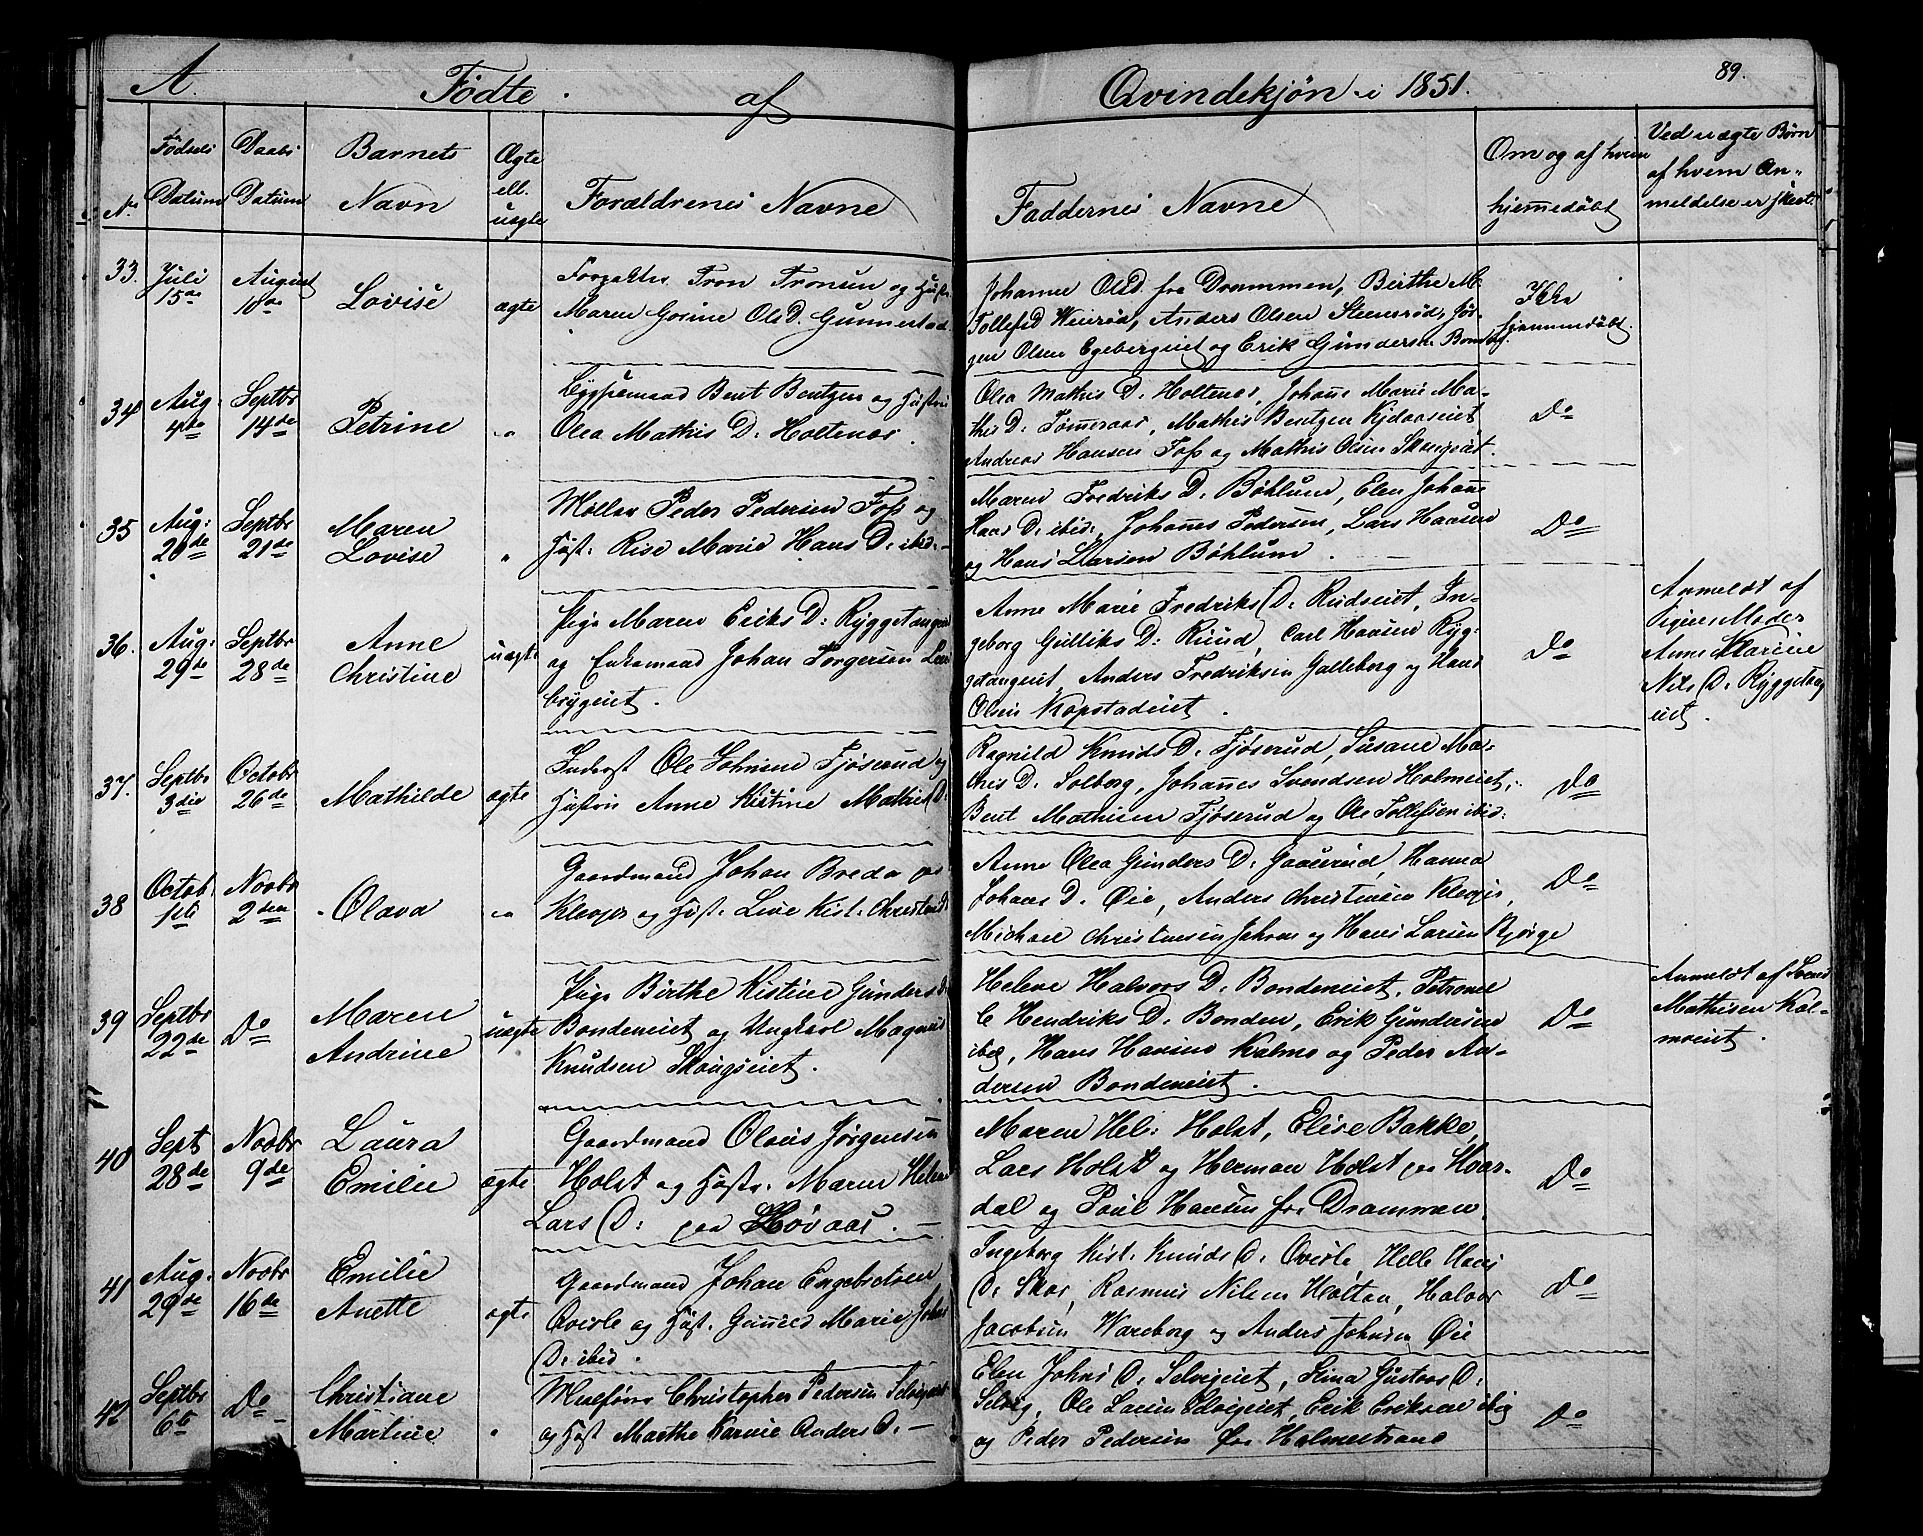 A. Födte af Qvindekjøn i 1851. 89.
No
Fødsels Datum
Daabs Datum
Barnets Navn
Ægte ell. uægte
Forældrenes Navne
Faddernes Navne
Om og af hvem hjemmedøbt
Ved uægte Børn af hvem Anmeldelse er skeet.
33. Juli 15de
August 10de
Lovise
ægte
Tron Tronsen og
Maren Gorine Ols D. Gunnestad
Johanne Olsd. fra Drammen, Birthe M.
Tollefsd Weierød, Anders Olsen Steensrød, Jør-
gen Olsen Egebergeiet og Erik Gundersen
Ikke
hjemmedøbt.
34 Aug. 4de
Septbr 14de
Petrine
"
Bent Bentzen og Hustru
Olea Mathis D. Holtenes.
Olea Mathis D. Holtenes, Johane Marie Ma-
this D. Tømeraas, Mathis Bentzen
Andreas Hansen Fos og Mathis Olsen
Do
35 Aug: 20de
Septbr 21de
Maren
Lovise
"
Møller Peder Pedersen Fos og
Hust: Rise Marie Hans D. ibid:
Maren Fredriks D. Bøhlum, Elen Johane
Hans D. ibid: Johanes Pedersen, Lars Hansen
og Hans Larsen Bøhlum.
Do
36. Aug: 29de
Septbr 28de
Anne
Christine
uægte
Pige Maren Eriks D: Ryggetangen
og Enkemand Johan Torgersen
Anne Marie Fredriks D: Rudseiet, In-
geborg Gulliks D: Ruud, Carl Hansen Ryg-
getangeiet Anders Fredriksen Galleberg og Hans
Olsen Kopstadeiet.
Do
Anmeldt af
Pigens Moder
Anne Marine
Nils D: Ryggetang
eiet.
37. Septbr 3die
Octobr 26de
Mathilde
ægte
Inderst Ole Johnsen Fjøserud og
Hustru Anne Kistine Mathis D:
Ragnild Knuds D. Fjøserud, Susane Ma-
this D. Solberg, Johannes Svendsen Holmeiet,
Bent Mathisen Fjøserud og Ole Tollefsen ibid:
Do
38 Octob. 1ste
Novbr 2den
Olava
"
Gaardmand Johan Breda paa
og Hust. Live Kist. Christens D.
Anne Olea Gunders D. Gaaserud, Hanna
Johans D. Øie, Anders Christensen
Michael Christensen og Hans Larsen Bjørge
Do
39 Septbr 22de
Do
Maren
Andrine
uægte
Pige Birthe Kistine Gunders D.
Bondeneiet og Ungkarl Magnus
Knudsen Skougseiet.
Helene Halvors D. Bondeneiet, Petronel
le Hendriks D. Bonden, Erik Gundersen
ibid, Hans Hansen Kolmo og Peder An-
dersen Bondeneiet.
Do
Anmeldt af Svend
Mathisen Kol-
moeiet.
40 Sept 28de
Novbr 9de
Laura
Emilie
ægte
Gaardmand Olaus Jørgensen
Holst og Hust. Maren Helene
Lars D: paa Høvaas.
Maren Hel: Holst, Elise Bakke,
Lars Holst og Herman Holst paa Hvar-
dal og Poul Hansen fra Drammen
Do
41 Aug. 29de
Novbr 16de
Emilie
Anette
ægte
Gaardmand Johan Engebretsen
Qverle og Hust. Gunild Marie Johns
D. ibid.
Ingeborg Kist. Knuds D. Qverle, Helle Hans
D. Skar, Rasmus Nilsen Holtan, Halvor
Jacobsen Wareborg og Anders Johnsen Øie
Do
42 Septbr 6te
Do
Christiane
Martine
"
Christopher Pedersen Selvigeiet
og Hust Marthe Karine Anders D.
Elen Johns D. Selvigeiet, Stina Gustavs D.
Selvig, Ole Larsen Selvigeiet, Erik Eriksen ibid
og Peder Pedersen fra Holmestrand
Do